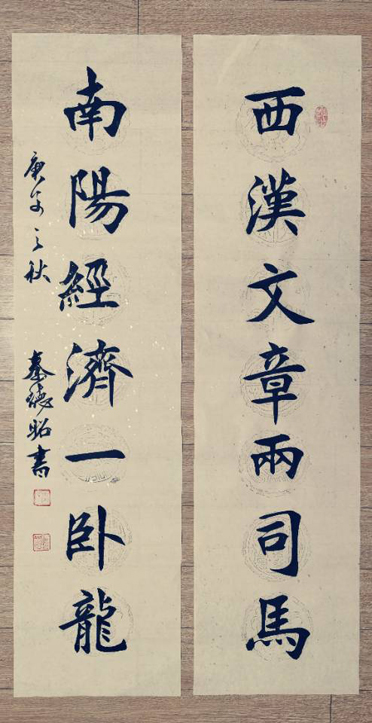 西漢文章兩司馬
南陽經濟一卧龍
庚子之秋 秦德昭書